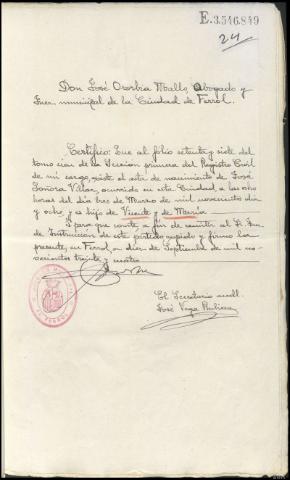 E.3.546.849
24
Don José Osorbia Mallo, Abogado y
Juez municipal de la Ciudad de Ferrol.
Certifico: Que al folio setenta y siete del
tomo cien de la Seccion primera del Registro Civil
de mi cargo, existe el acta de nacimiento de José
Lonora Villar, ocurrido en esta Ciudad, a las ocho
horas del dia tres de Marzo de mil novecientos diez
y ocho, es hijo de Vicente y de María
Y para que conste, a fin de remitir al S. Juez
de Instruccion de este partido, expido y firmo la
presente, en Ferrol, a diez de Septiembre de mil no-
vecientos treinta y cuatro
El Secretario
José Vega